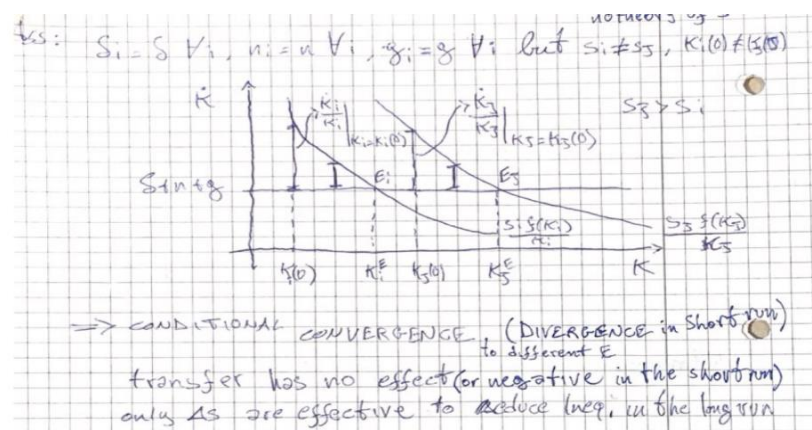 δi = δ ∀i, ni = n ∀i, gi = g ∀i but si ≠ sj, Ki(0) ≠ Kj(0)
K̇
K̇i/Ki |Ki=Ki(0)
K̇j/Kj |Kj=Kj(0)
sj > si
δ+n+g
Ei
Ej
si f(Ki)/Ki
sj f(Kj)/Kj
Ki(0)
KiE
Kj(0)
KjE
K
=> CONDITIONAL CONVERGENCE (DIVERGENCE in short run)
to different E
transfer has no effect (or negative in the short run)
only Δs are effective to reduce ineq. in the long run